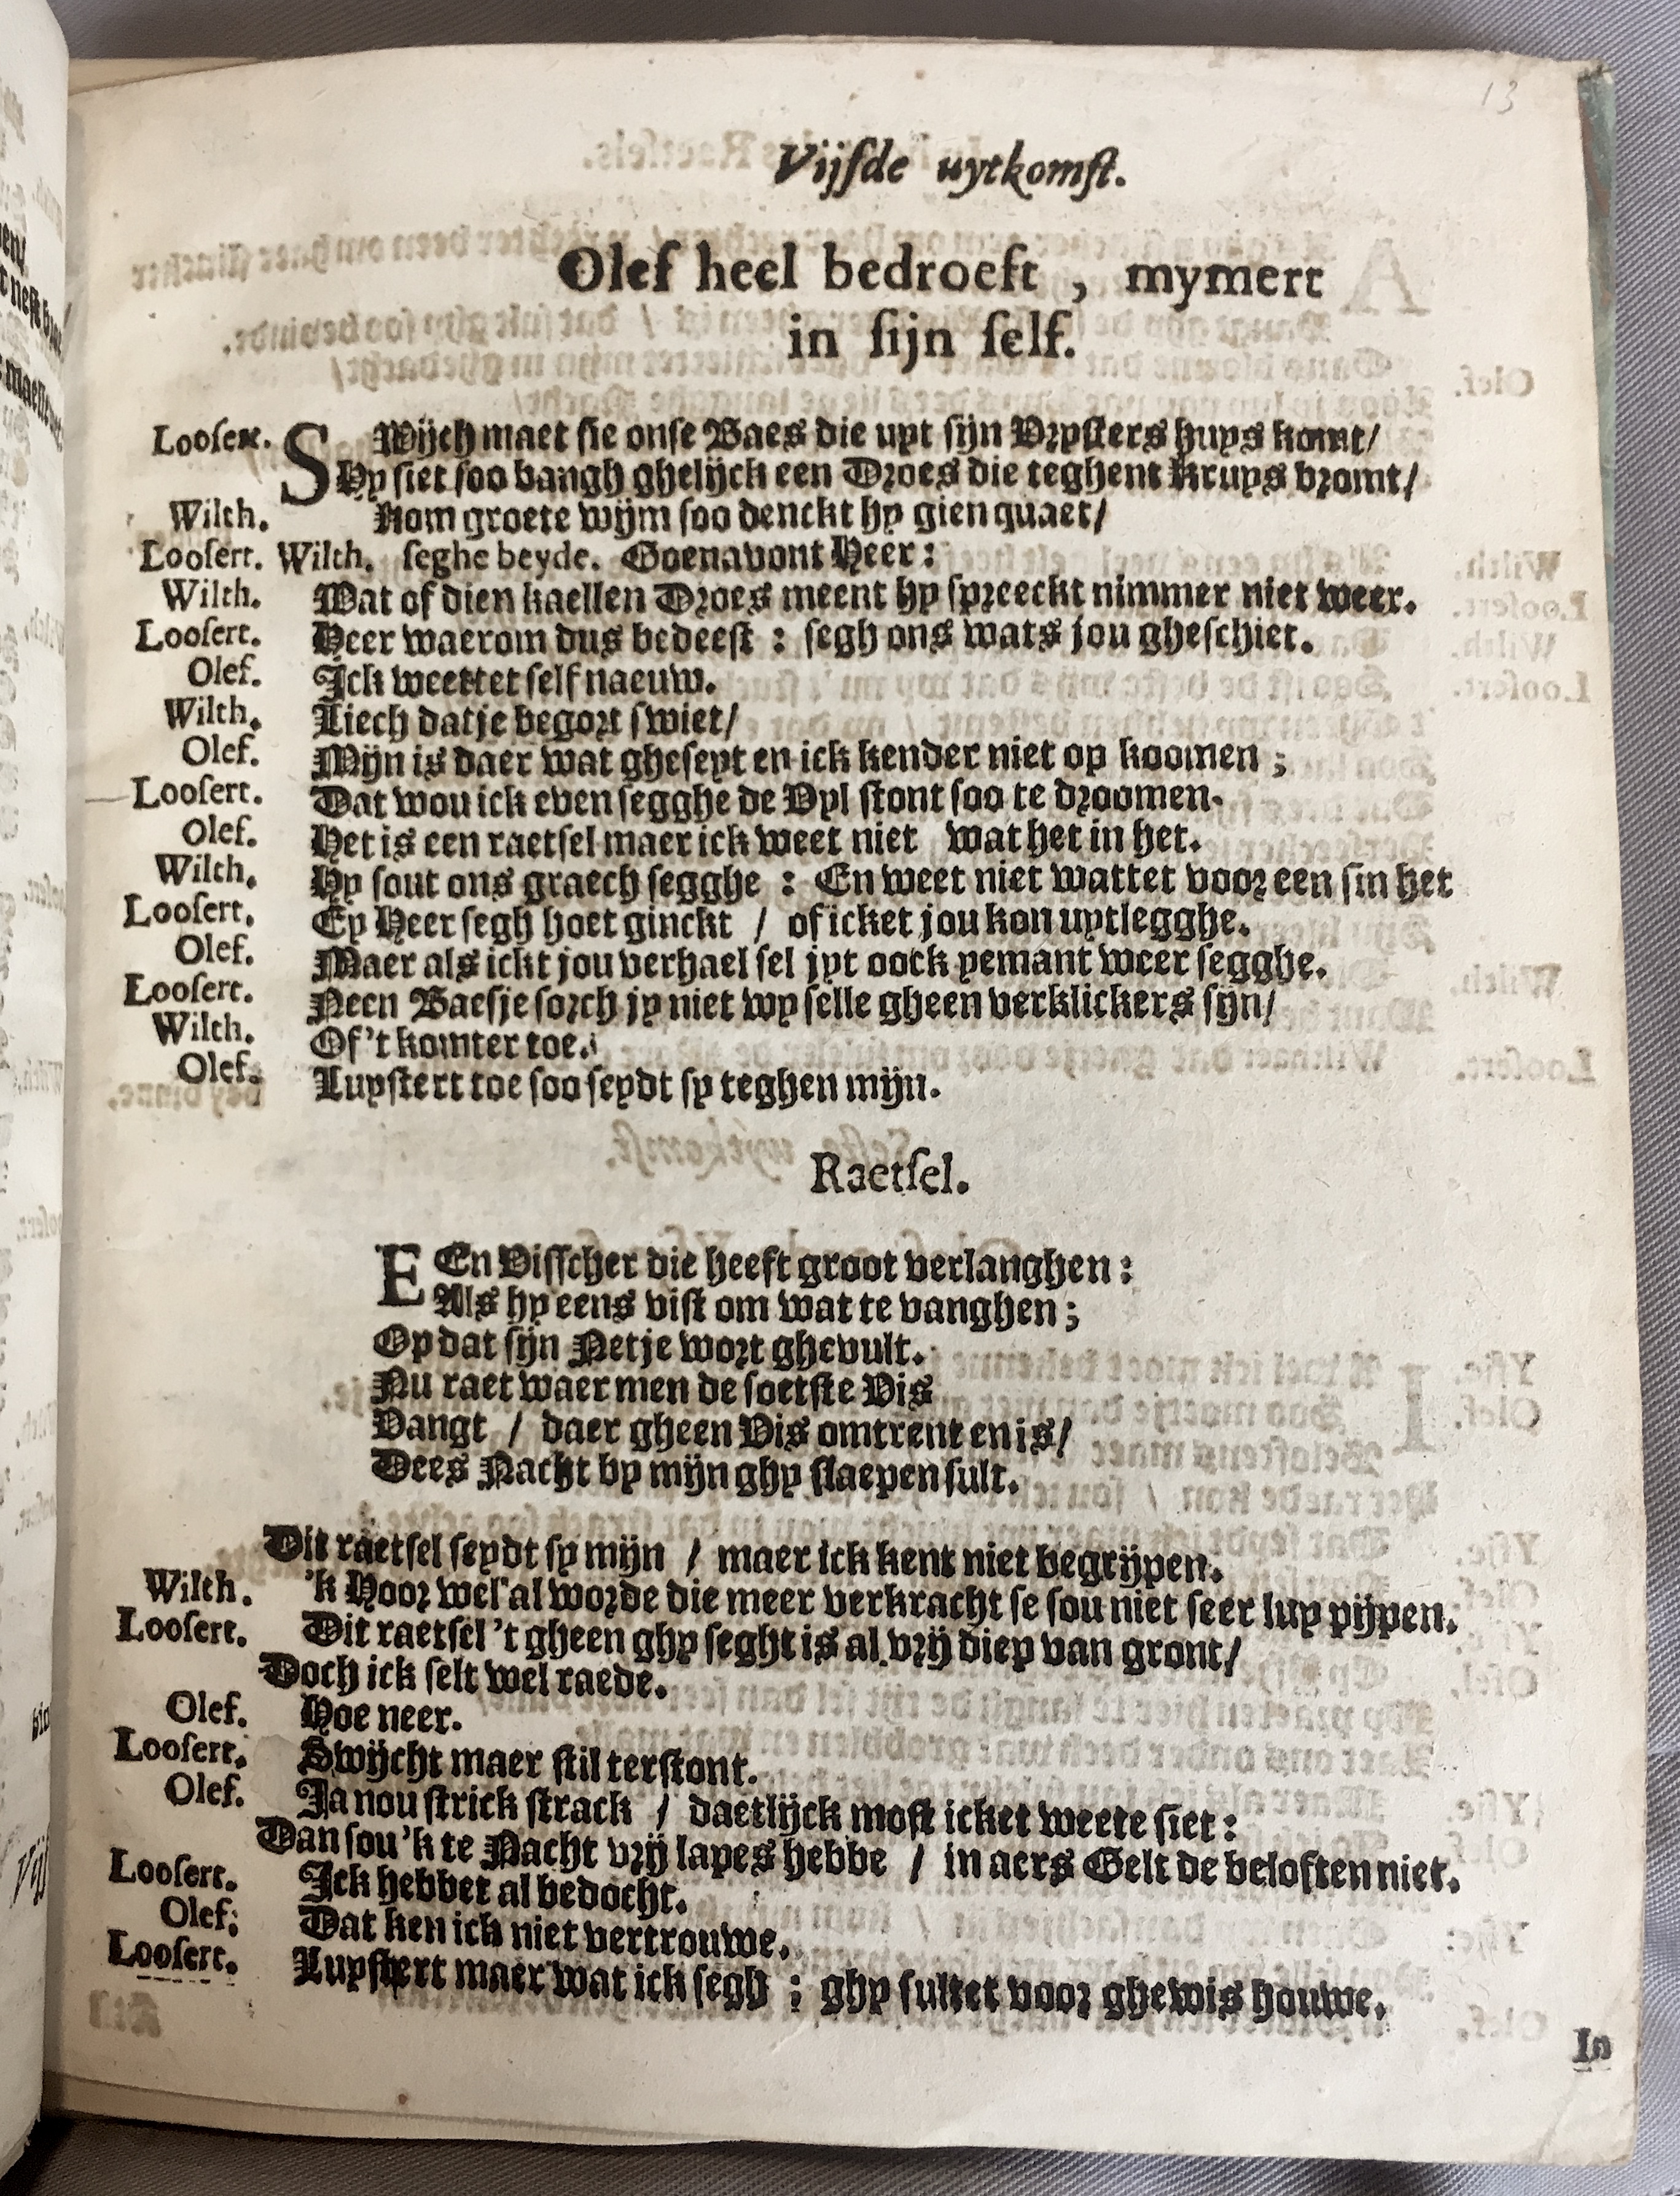 13
Vijfde uytkomſt.
Olef heel bedroeft, mymert
in ſijn ſelf.
Looſer. SWijch maet ſie onſe Baes die uyt ſijn Vryſters huys komt/
Hy ſiet ſoo bangh ghelijck een Droes die teghent kruys bromt/
Wilth. Kom groete wijm ſoo denckt hy gien quaet/
Looſert. Wilth. ſeghe beyde. Goenavont Heer:
Wilth. Wat of dien kaellen Droes meent hy ſpreeckt nimmer niet weer.
Looſert. Heer waerom dus bedeeſt: ſegh ons wats jou gheſchiet.
Olef. Ick weettet ſelf naeuw.
Wilth. Liech datje begort ſwiet/
Olef. Mijn is daer wat gheſeyt en ick kender niet op koomen;
Looſert. Dat wou ick even ſegghe de Uyl ſtont ſoo te droomen.
Olef. Het is een raetſel maer ick weet niet wat het in het.
Wilth. Hy ſout ons graech ſegghe: En weet niet wattet voor een ſin het
Looſert. Ey Heer ſegh hoet ginckt / of icket jou kon uytlegghe.
Olef. Maer als ickt jou verhael ſel jyt oock yemant weer ſegghe.
Looſert. Neen Baesje ſorch jy niet wy ſelle gheen verklickers ſijn/
Wilth. Of 't komter toe.
Olef. Luyſtert toe ſoo ſeydt ſy teghen mijn.
Raetſel.
EEn Viſſcher die heeft groot verlanghen:
Als hy eens viſt om wat te vanghen;
Op dat ſijn Netje wort ghevult.
Nu raet waer men de ſoetſte Vis
Vangt / daer gheen Vis omtrent en is/
Dees Nacht by mijn ghy ſlaepen ſult.
Dit raetſel ſeydt ſy mijn / maer ick kent niet begrijpen.
Wilth. 'k Hoor wel al worde die meer verkracht ſe ſou niet ſeer luy pijpen.
Looſert. Dit raetſel 't gheen ghy ſeght is al vrij diep van gront/
Doch ick ſelt wel raede.
Olef. Hoe neer.
Looſert. Swijcht maer ſtil terſtont.
Olef. Ja nou ſtrick ſtrack / daetlijck moſt icket weete ſiet:
Dan ſou 'k te Nacht vrij lapes hebbe / in aers Gelt de beloften niet.
Looſert. Ick hebbet al bedocht.
Olef: Dat ken ick niet vertrouwe.
Looſert. Luyſtert maer wat ick ſegh; ghy ſultet voor ghewis houwe.
In